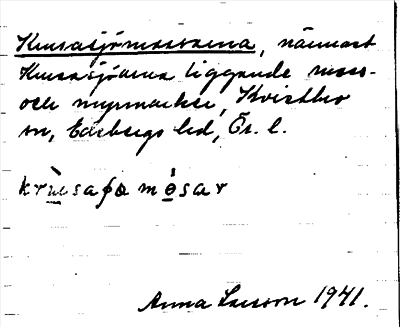 Krusasjömossarna, närmast
Krusasjöarna liggande moss-
och myrmarker, Kvistbro
sn, Edsbergs hd, Ör. l.
krùsaʃɷ mósar
Anna Larson 1941.